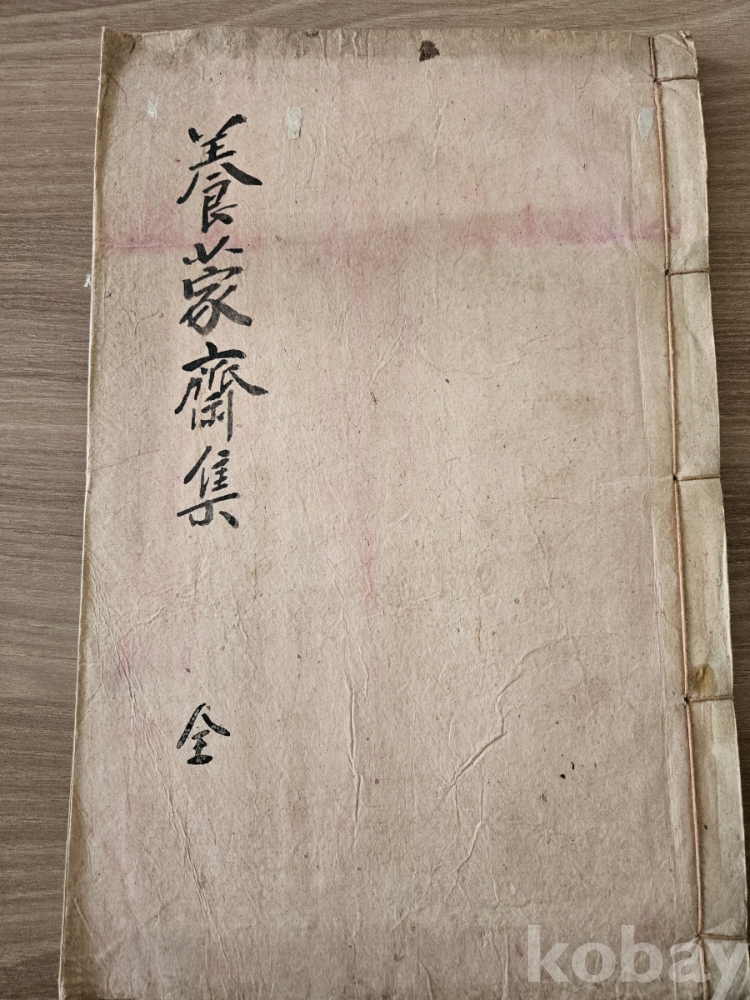 養蒙齋集
全
kobay